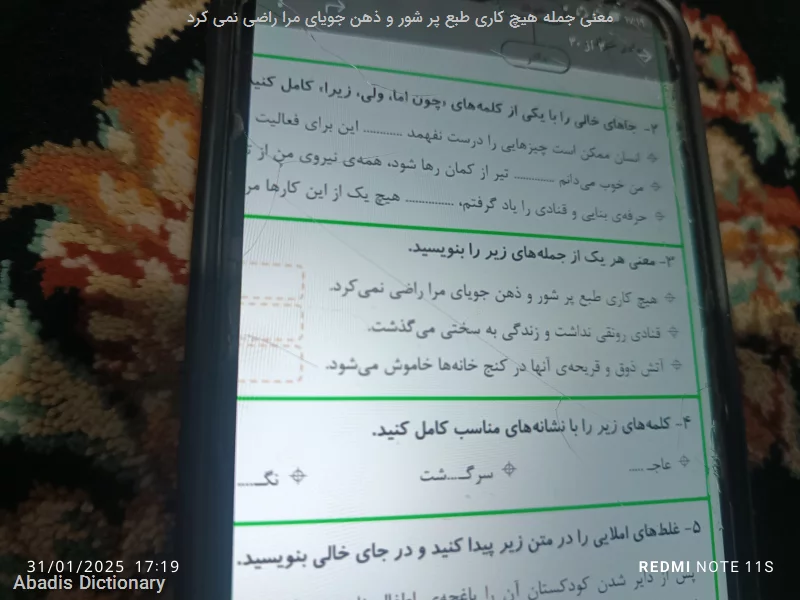 معنی جمله هیچ کاری طبع پر شور و ذهن جویای مرا راضی نمی کرد
۲- جاهای خالی را با یکی از کلمه‌های «چون اما، ولی، زیرا» کامل کنید
انسان ممکن است چیزهایی را درست نفهمد ........... این برای فعالیت
من خوب می‌دانم ........... تیر از کمان رها شود، همه‌ی نیروی من از
حرفه‌ی بنایی و قنادی را یاد گرفتم، ............. هیچ یک از این کارها مر
۳- معنی هر یک از جمله‌های زیر را بنویسید.
هیچ کاری طبع پر شور و ذهن جویای مرا راضی نمی‌کرد.
قنادی رونقی نداشت و زندگی به سختی می‌گذشت.
آتش ذوق و قریحه‌ی آنها در کنج خانه‌ها خاموش می‌شود.
۴- کلمه‌های زیر را با نشانه‌های مناسب کامل کنید.
عاجـ ..... سرگـ....شت نگـ.....
۵- غلط‌های املایی را در متن زیر پیدا کنید و در جای خالی بنویسید.
پس از دایر شدن کودکستان آن را باغچه‌ی اطفال
31/01/2025 17:19
REDMI NOTE 11S
Abadis Dictionary